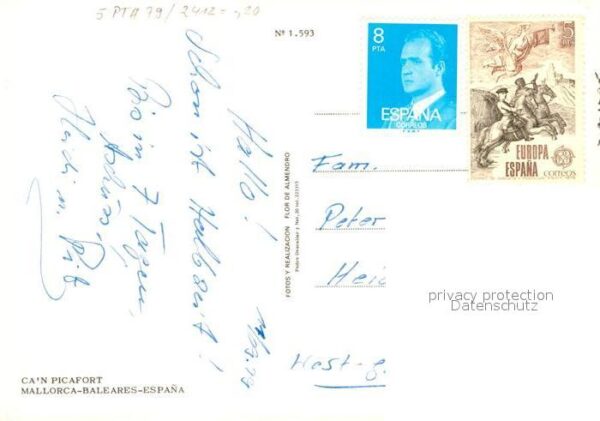 5 PTA 79 / 2412 = -,20
Nº 1.593
Hallo!
Schon ist Halbzeit!
Bis in 7 Tagen,
Adios
Heidi u.
8
PTA
ESPAÑA
CORREOS
5
EUROPA
ESPAÑA
correos
Fam.
Peter
Heid
West-g
FOTOS Y REALIZACION FLOR DE ALMENDRO
privacy protection
Datenschutz
CA'N PICAFORT
MALLORCA-BALEARES-ESPAÑA